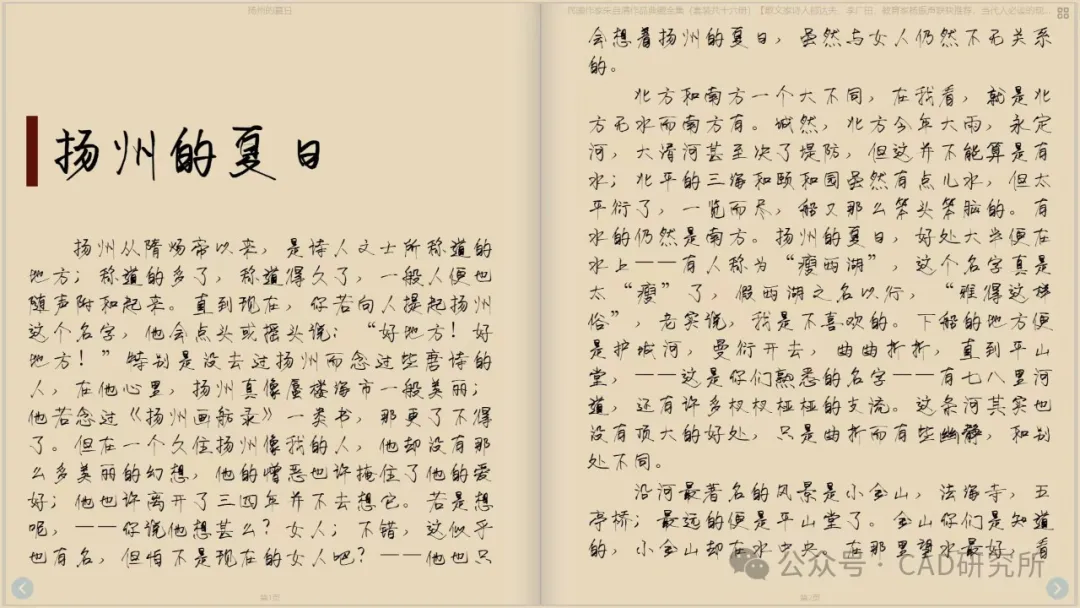 扬州的夏日
扬州的夏日
扬州从隋炀帝以来，是诗人文士所称道的
地方；称道的多了，称道得久了，一般人便也
随声附和起来。直到现在，你若向人提起扬州
这个名字，他会点头或摇头说：“好地方！好
地方！”特别是没去过扬州而念过些唐诗的
人，在他心里，扬州真像蜃楼海市一般美丽；
他若念过《扬州画舫录》一类书，那更了不得
了。但在一个久住扬州像我的人，他却没有那
么多美丽的幻想，他的憎恶也许掩住了他的爱
好；他也许离开了三四年并不去想它。若是想
呢，——你说他想甚么？女人；不错，这似乎
也有名，但怕不是现在的女人吧？——他也只
第1页
民国作家朱自清作品典藏全集（套装共十六册）
会想着扬州的夏日，虽然与女人仍然不无关系
的。
北方和南方一个大不同，在我看，就是北
方无水而南方有。诚然，北方今年大雨，永定
河，大清河甚至决了堤防，但这并不能算是有
水；北平的三海和颐和园虽然有点儿水，但太
平衍了，一览而尽，船又那么笨头笨脑的。有
水的仍然是南方。扬州的夏日，好处大半便在
水上——有人称为“瘦西湖”，这个名字真是
太“瘦”了，假西湖之名以行，“雅得这样
俗”，老实说，我是不喜欢的。下船的地方便
是护城河，曼衍开去，曲曲折折，直到平山
堂，——这是你们熟悉的名字——有七八里河
道，还有许多杈杈桠桠的支流。这条河其实也
没有顶大的好处，只是曲折而有些幽静，和别
处不同。
沿河最著名的风景是小金山，法海寺，五
亭桥；最远的便是平山堂了。金山你们是知道
的，小金山却在水中央。在那里望水最好，看
第2页
公众号·CAD研究所